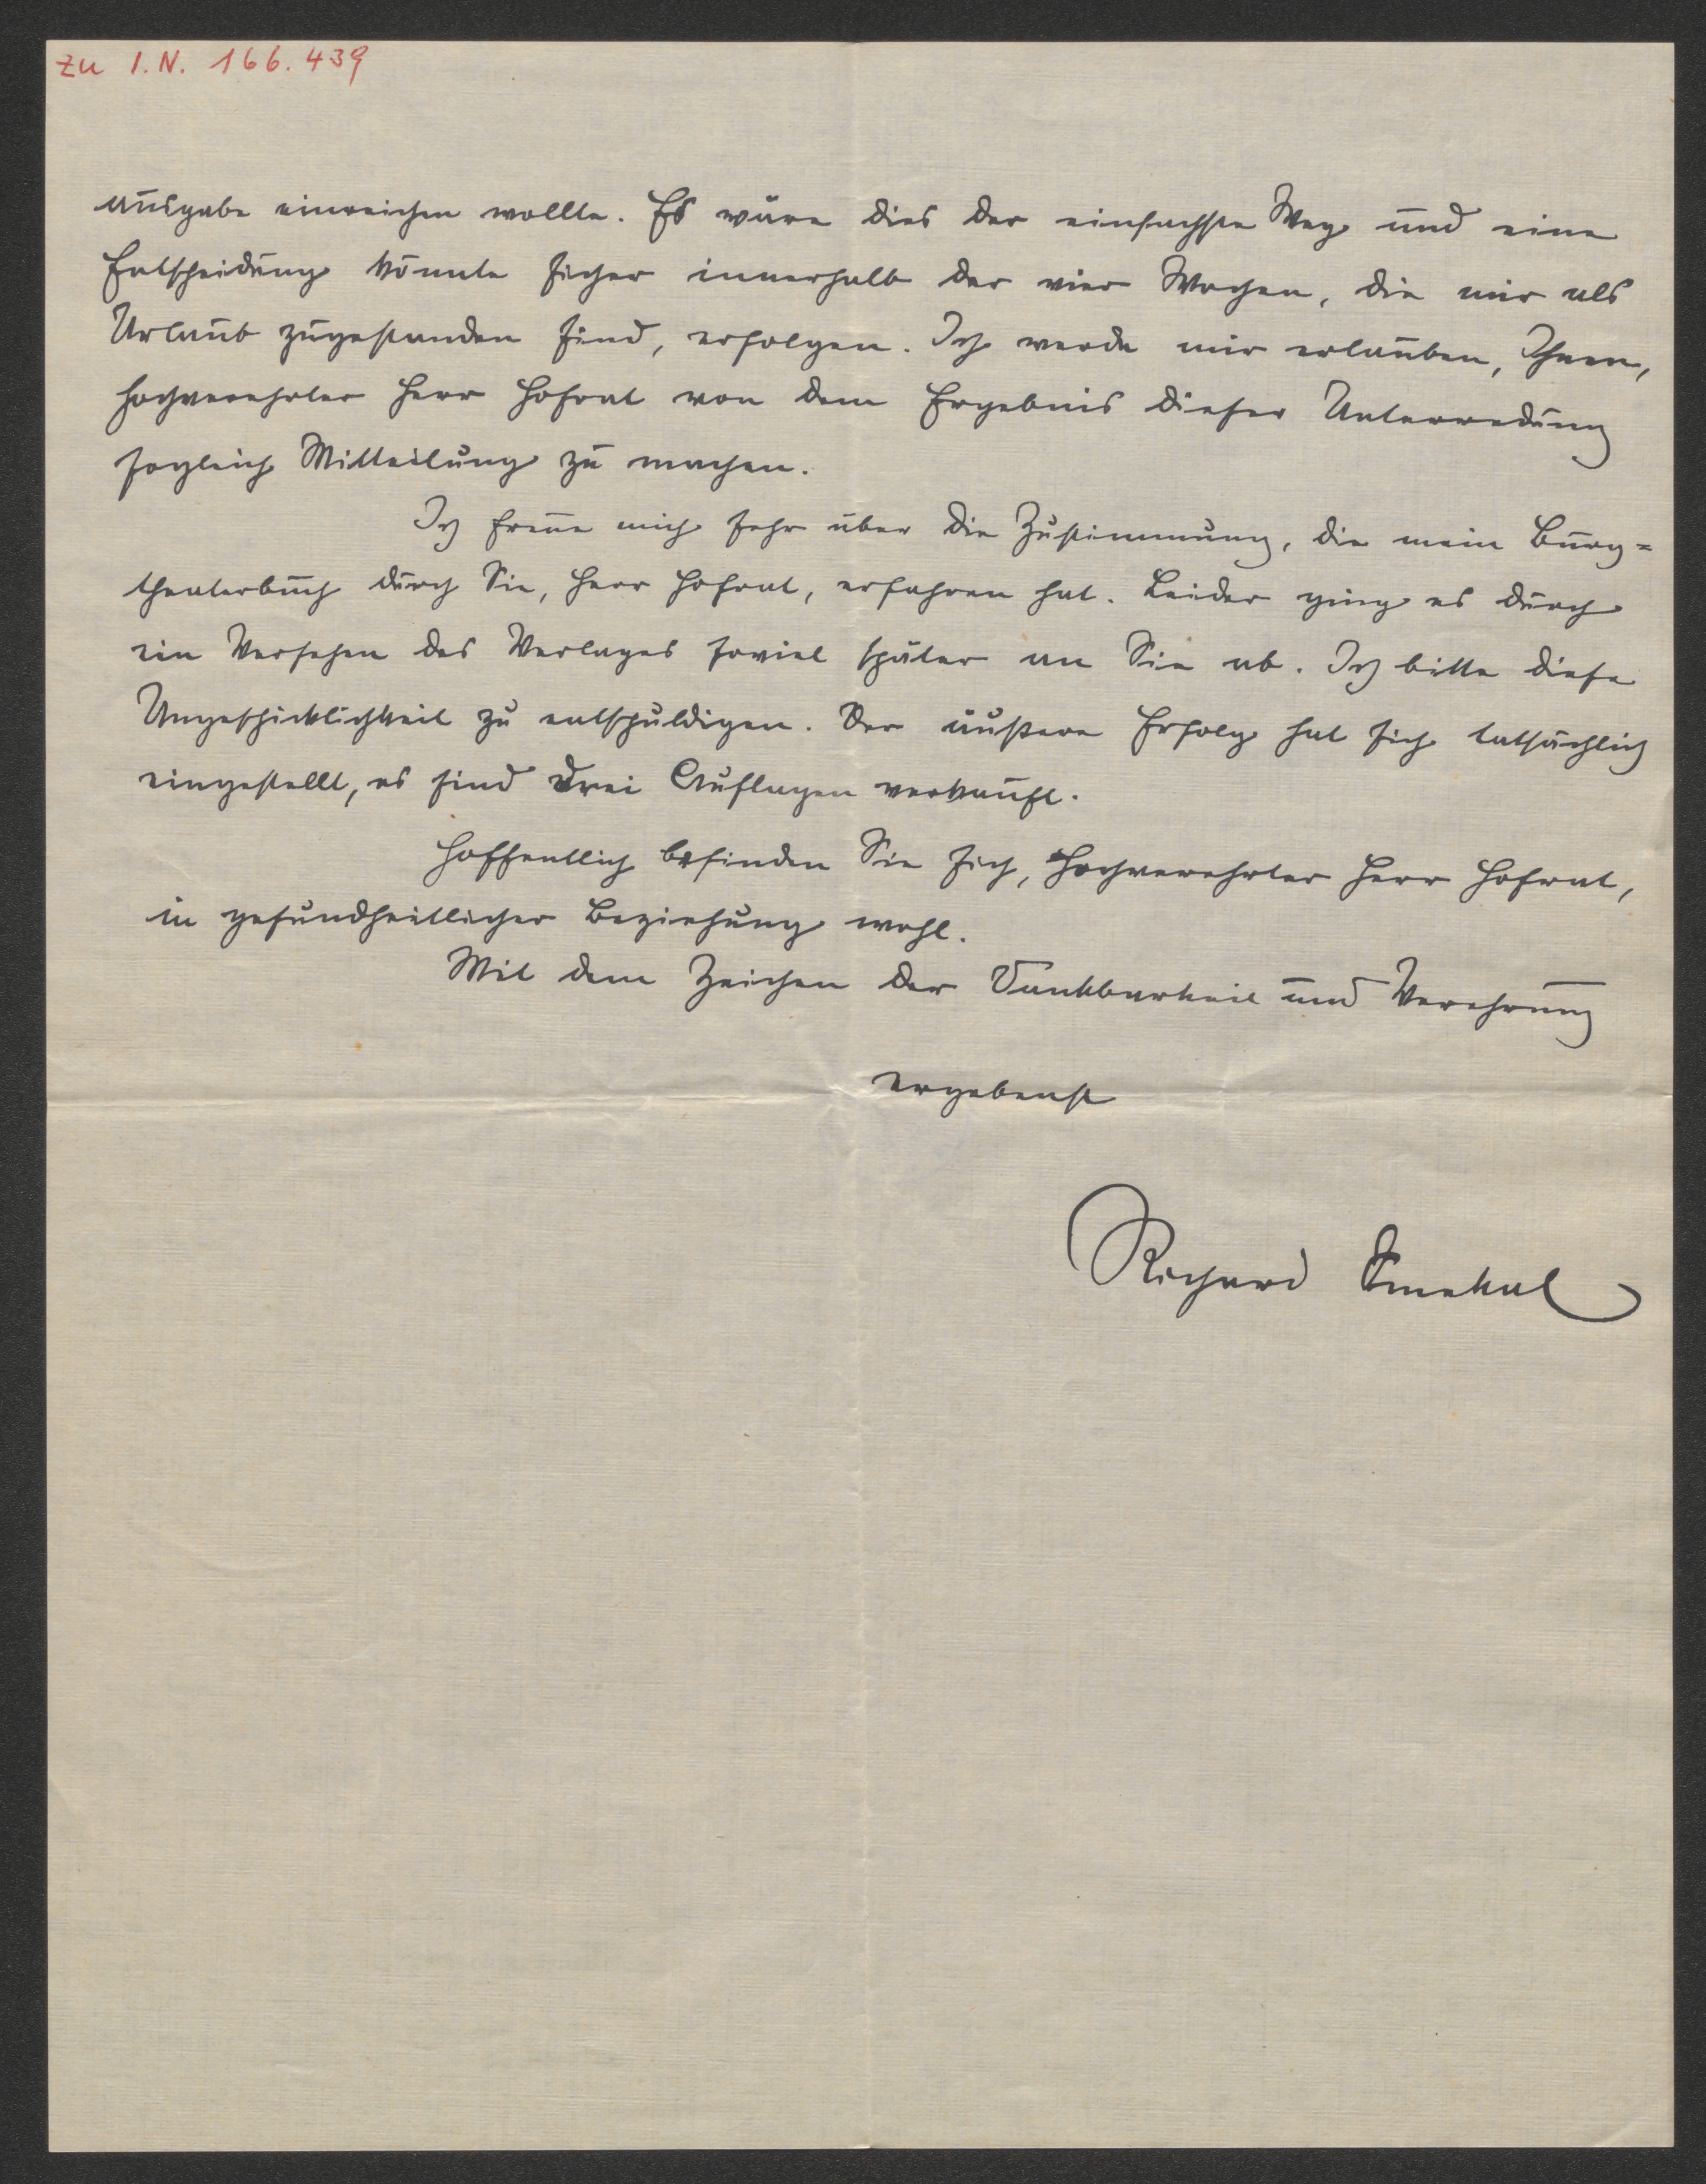 zu I.N. 166.439
ausgabe einreichen wollte. Es wäre dies der einfachste Weg und eine
Entscheidung könnte sicher innerhalb der vier Wochen, die mir als
Urlaub zugestanden sind, erfolgen. Ich werde mir erlauben, Ihnen,
hochverehrter Herr Hofrat von dem Ergebnis dieser Unterredung
sogleich Mitteilung zu machen.
Ich freue mich sehr über die Zustimmung, die mein Burg=
theaterbuch durch Sie, Herr Hofrat, erfahren hat. Leider ging es durch
ein Versehen des Verlages soviel später an Sie ab. Ich bitte diese
Ungeschicklichkeit zu entschuldigen. Der äußere Erfolg hat sich tatsächlich
eingestellt, es sind drei Auflagen verkauft.
Hoffentlich befinden Sie sich, hochverehrter Herr Hofrat,
in gesundheitlicher Beziehung wohl.
Mit dem Zeichen der Dankbarkeit und Verehrung
ergebenst
Richard Smekal